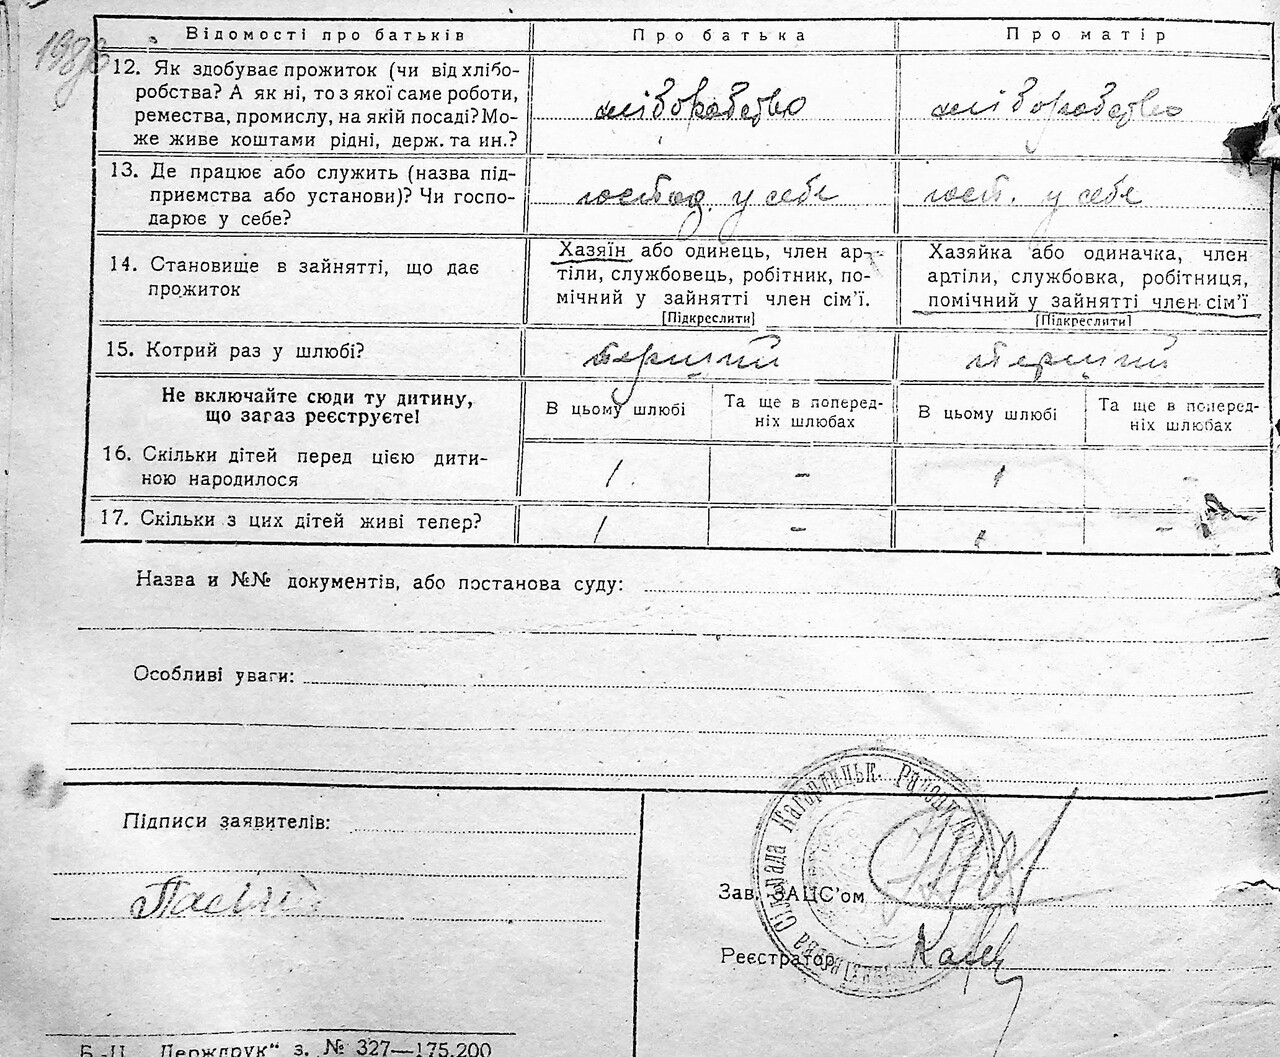 Відомості про батьків Про батька Про матір
12. Як здобуває прожиток (чи від хлібо-
робства? А як ні, то з якої саме роботи,
ремества, промислу, на якій посаді? Мо-
же живе коштами рідні, держ. та ин.?
хліборобство хліборобство
13. Де працює або служить (назва під-
приємства або установи)? Чи госпо-
дарює у себе?
господ. у себе госп. у себе
14. Становище в зайнятті, що дає
прожиток
Хазяїн або одинець, член ар-
тіли, службовець, робітник, по-
мічний у зайнятті член сім’ї.
[Підкреслити]
Хазяйка або одиначка, член
артіли, службовка, робітниця,
помічний у зайнятті член сім’ї
[Підкреслити]
15. Котрий раз у шлюбі? перший перший
Не включайте сюди ту дитину,
що загаз реєструєте!
В цьому шлюбі
Та ще в поперед-
ніх шлюбах
В цьому шлюбі
Та ще в поперед-
ніх шлюбах
16. Скільки дітей перед цією дити-
ною народилося
1 - 1 -
17. Скільки з цих дітей живі тепер? 1 - 1 -
Назва и №№ документів, або постанова суду:
Особливі уваги:
Підписи заявителів:
Зав. ЗАЦС’ом
Реєстратор
Сільрада Кагорлицьк.
Б.-Ц. „Держдрук“ з. № 327—175.200